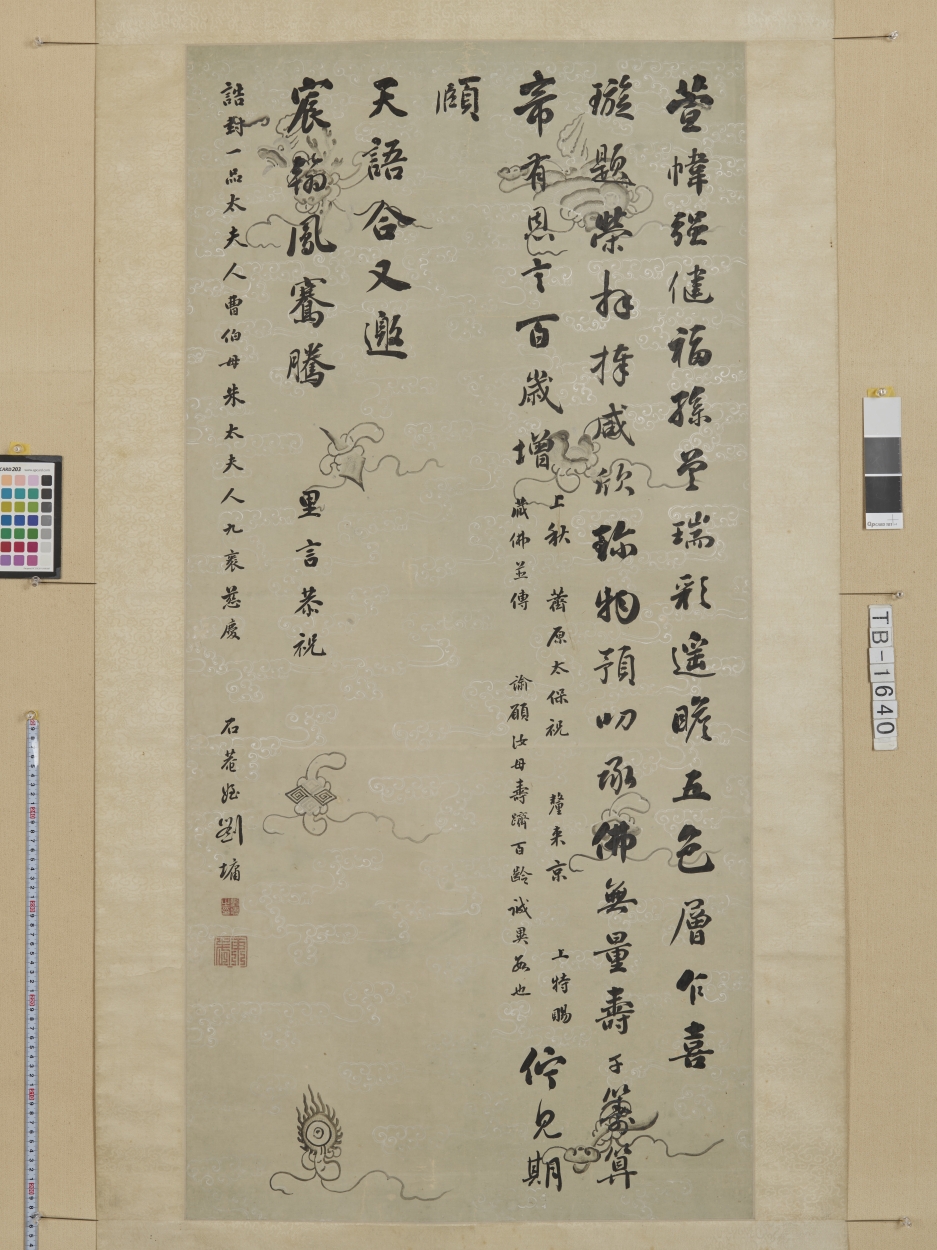 萱幃强健福孫曾瑞彩遥瞻五色層乍喜
璇題榮拜捧咸欣珎物預叨承佛無量壽千籌算
帝有恩言百歲增
上秋薦原太保祝釐来京上特賜
藏佛並傳諭願汝母壽躋百齡誠異數也
佇見期
頤
天語合又邀
宸翰鳳騫騰
里言恭祝
誥封一品太夫人曹伯母朱太夫人九袠慈慶
石菴姪劉墉
TB-1640